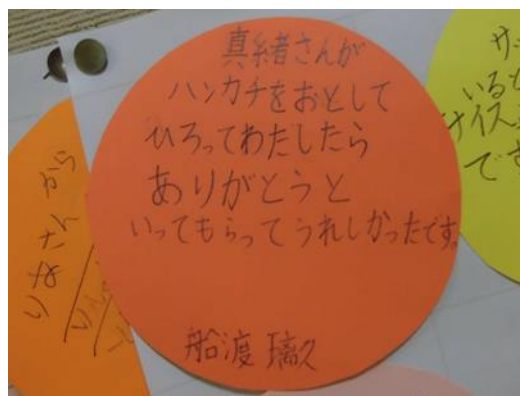 真緒さんが
ハンカチをおとして
ひろってわたしたら
ありがとうと
いってもらってうれしかったです。
船渡 璃久
りなさん から
いると
ナイス
です